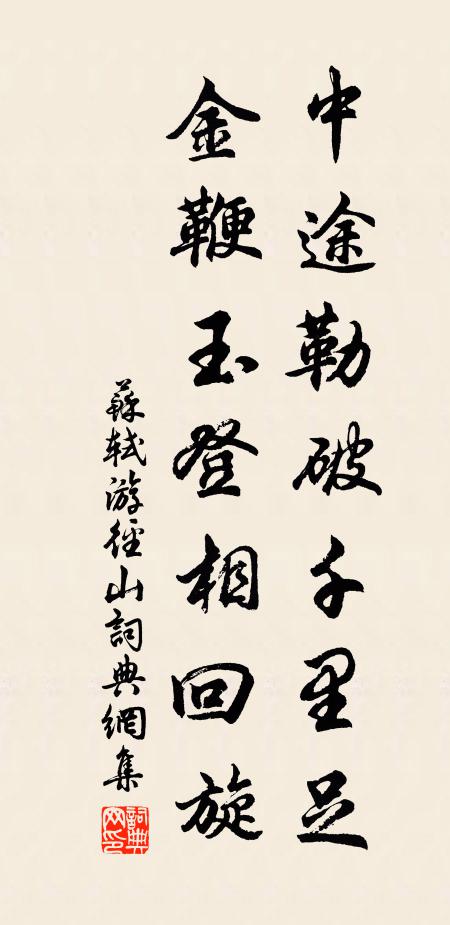 中途勒破千里足
金鞭玉登相回旋
蘇軾游徑山詞典網集
詞典網印